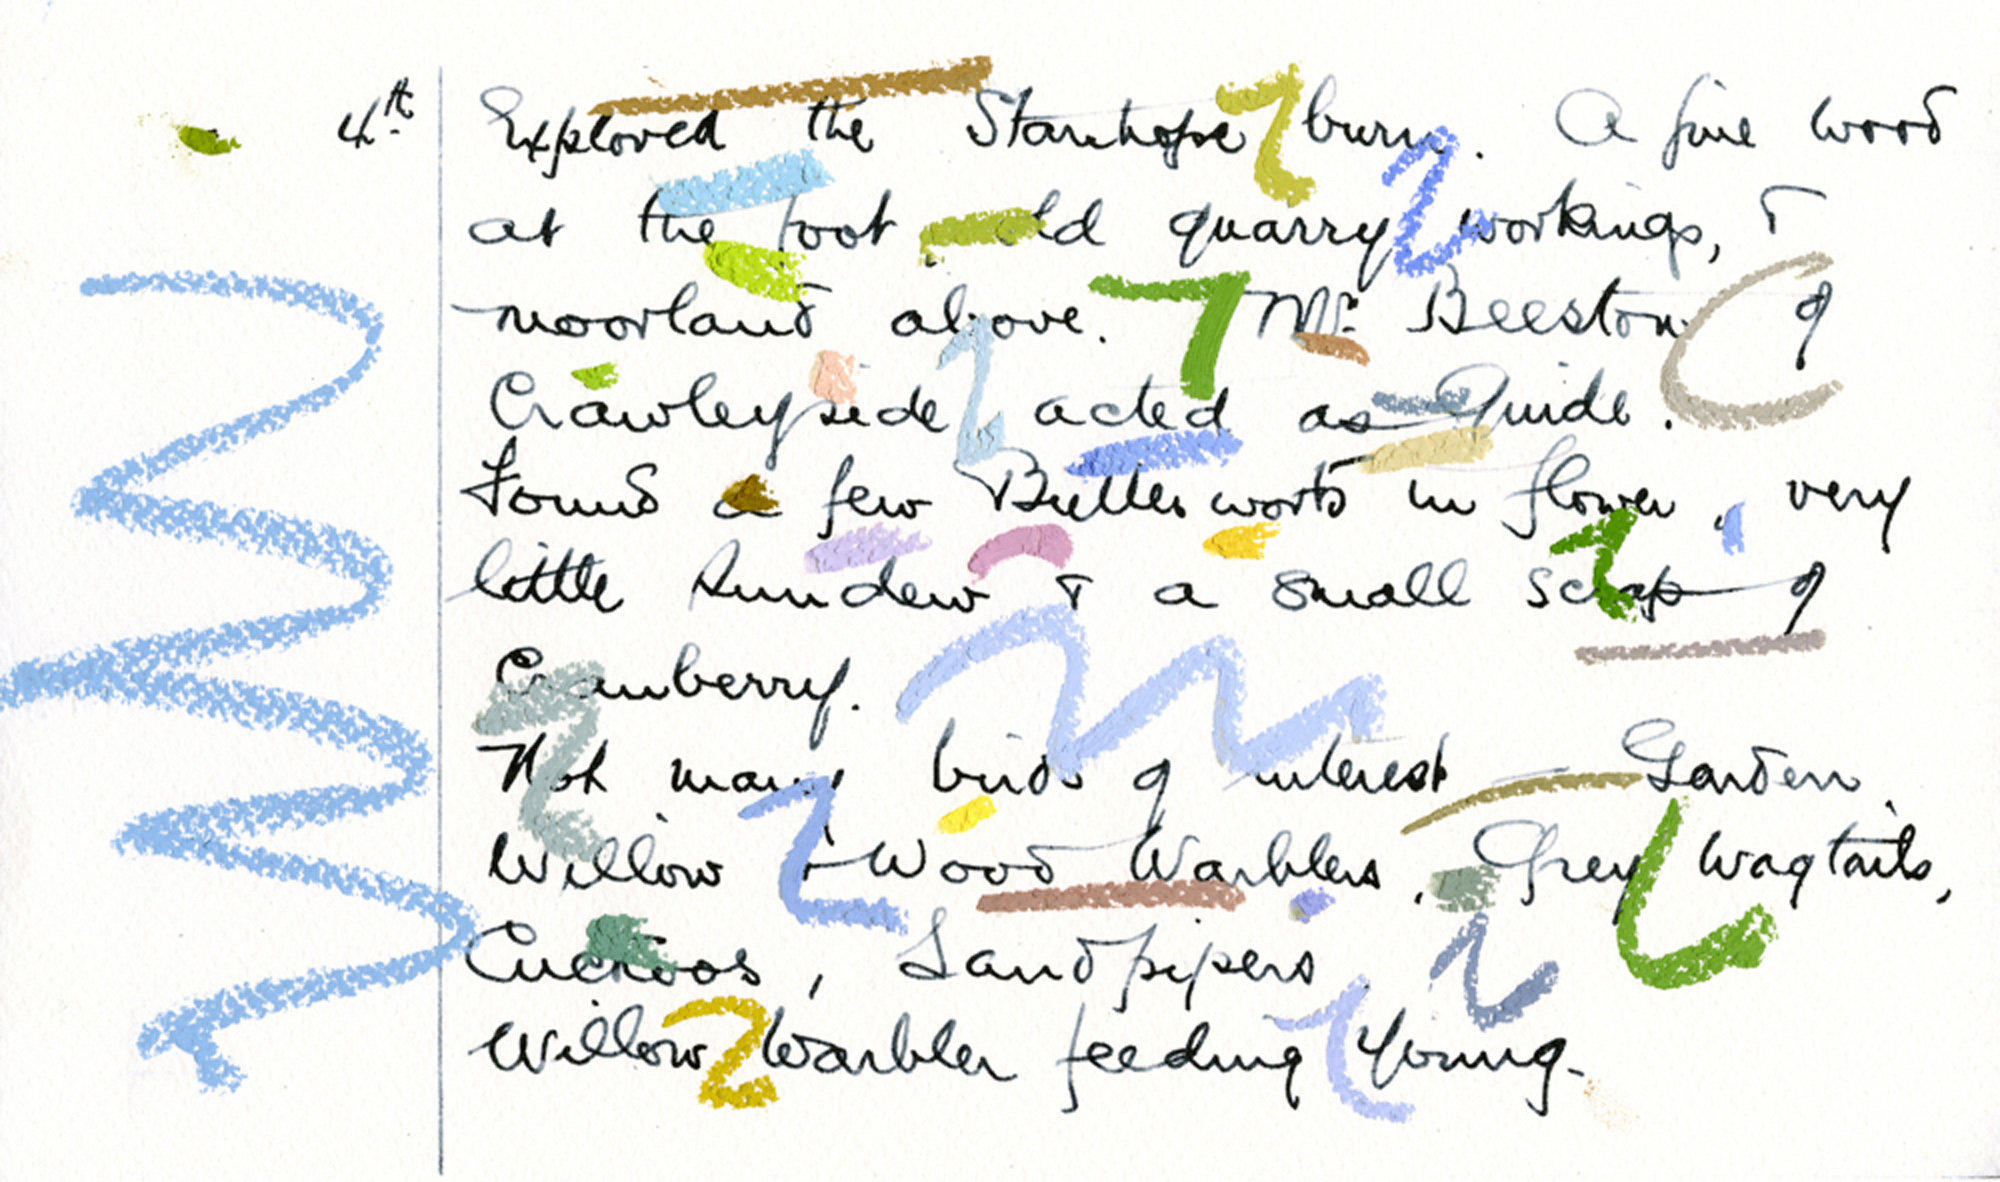 4th. Explored the Stanhope burn. A fine wood
at the foot old quarry workings, &
moorland above. Mr. Beeston of
Crawleyside acted as Guide.
Found a few Butterworts in flower, very
little Sundew & a small scrap of
Cranberry.
Not many birds of interest — Garden
Willow & Wood Warblers, Grey Wagtails,
Cuckoos, Sandpipers
Willow Warbler feeding Young.